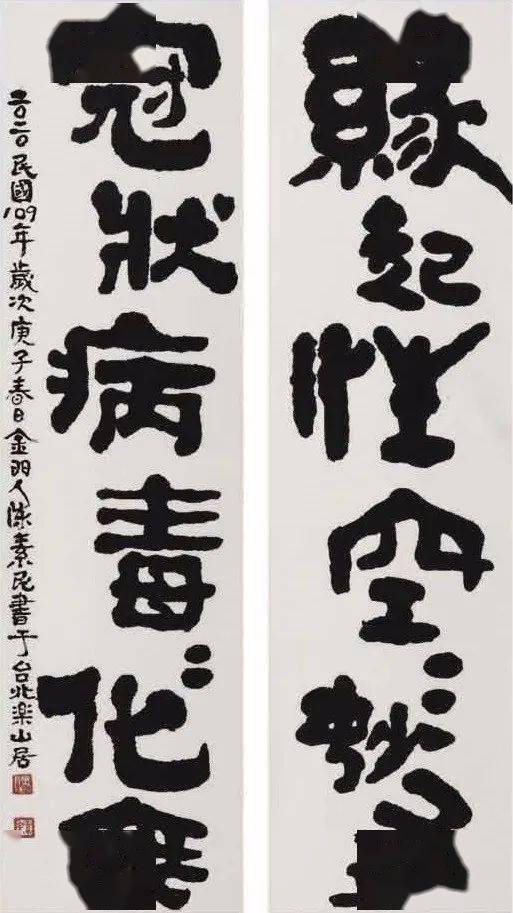 緣起性空〻妙
冠狀病毒〻化無
二〇二〇民國109年歲次庚子春日金門人陳素民書于台北楽山居